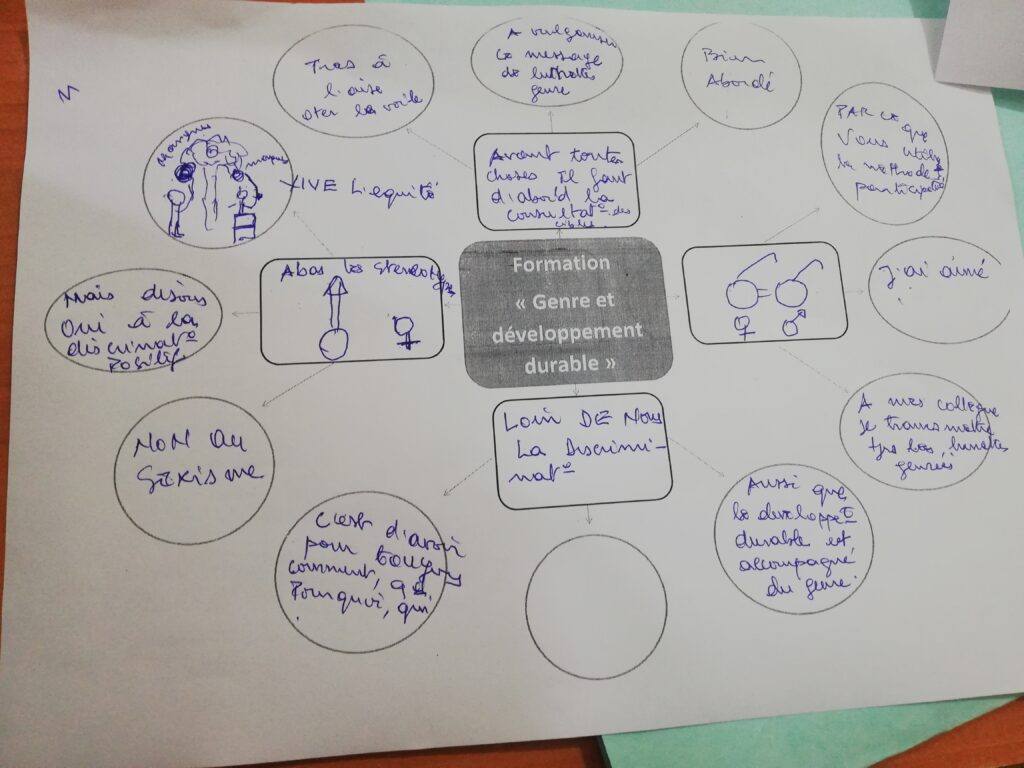 Formation
« Genre et
développement
durable »
Avant toutes
choses Il faut
d'abord la
consultatº des
cibles.
Tras à
l'aise
oter la voile
A vulgariser
ce message
de
genre
Bien
Abordé
PAR ce que
Vous
la méthode
participa
J'ai aimé
A mes collègue
je transmettre
tjrs les lunettes
genrées
Aussi que
le developpeᵗ
durable est
accompagné
du genre.
LOIN DE NOUS
LA Discrimi-
natº
C'est d'avoir
pour toujours
comment,
Pourquoi, qui
Abas les stereotypes
NON AU
SEXISME
Mais disons
OUI à la
discriminatº
Positif.
Mangues
mangues
VIVE L'equité
N